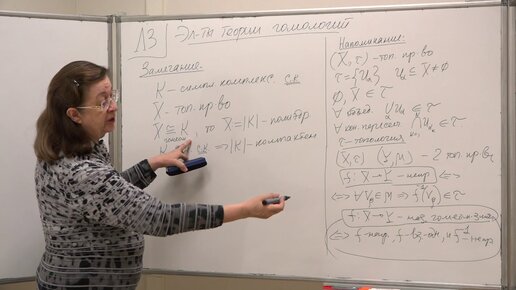 Л3 Эл-ты теории гомологий
Замечание.
K - симпл комплекс. с.к
X - топ. пр-во
X ≅ K, то X = |K| - полиэдр
гомеом
K с.к ⇒ |K| - компактен
Напоминание:
(X, τ) - топ. пр-во
τ = {U_α} U_α ⊆ X ≠ Ø
Ø, X ∈ τ
∀ объед. ⋃U_α ∈ τ
∀ кон. пересеч. ⋂U_α ∈ τ
τ - топология
(X, τ) (Y, μ) - 2 топ. пр-ва
f: X → Y - непр
⇔ ∀V_β ∈ μ ⇒ f⁻¹(V_β) ∈ τ
f: X → Y - наз гомеом-зм
⇔ f - непр, f - вз-одн, и f⁻¹ - непр